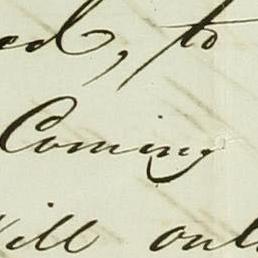 ed, to
Coming
will onl